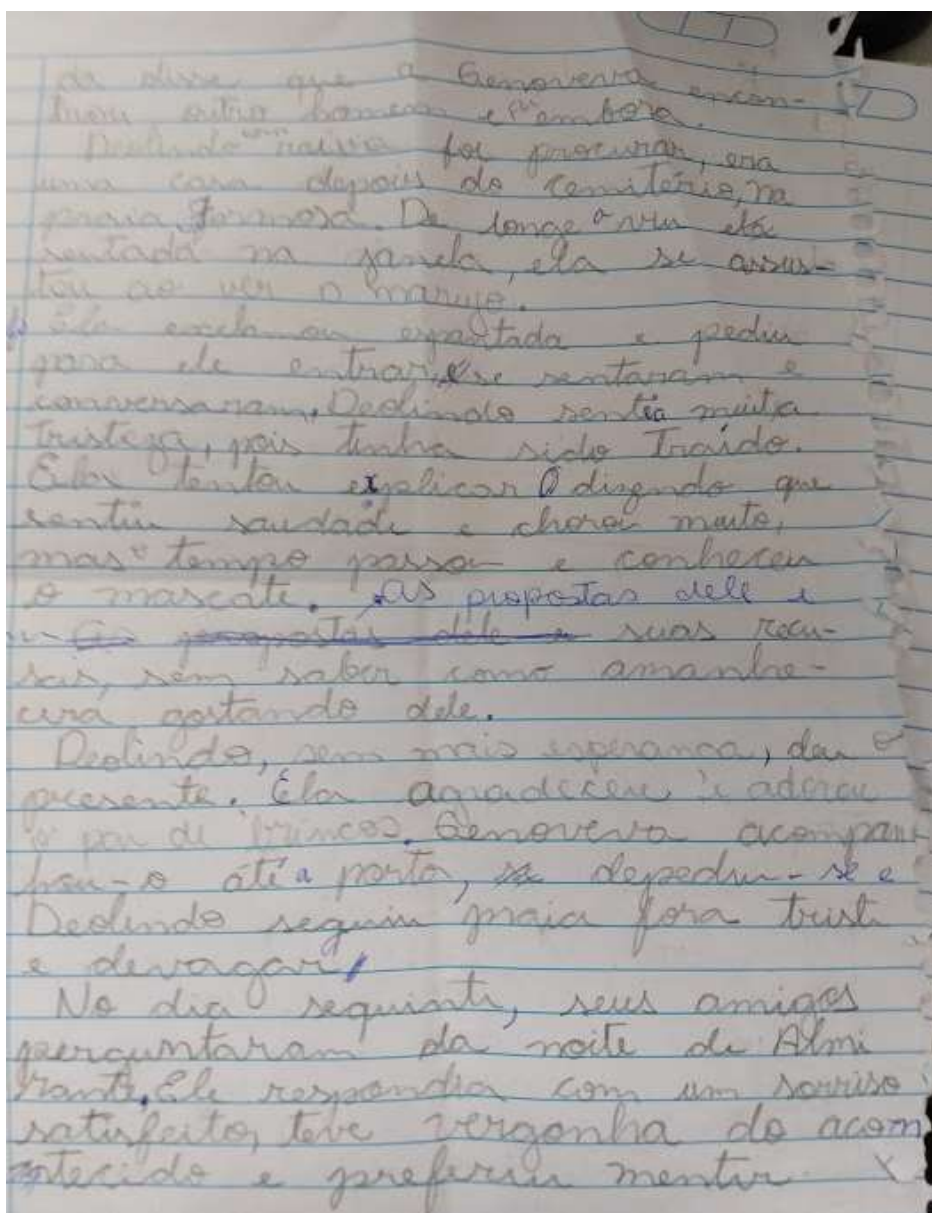 da disse que a Genoveva encon-
trou outro homem e foi embora.
Deolindo com raiva foi procurar, era
uma casa depois do cemitério, na
praia Formosa. De longe a viu ela
sentada na janela, ela se assus-
tou ao ver o marujo.
Ela exclamou espantada e pediu
para ele entrar, e se sentaram e
conversaram. Deolindo sentia muita
tristeza, pois tinha sido Traído.
Ela tentou explicar dizendo que
sentiu saudade e chorou muito,
mas o tempo passou e conheceu
o mascate. As propostas dele e
suas recu-
sas, sem saber como amanhe-
cera gostando dele.
Deolindo, sem mais esperanca, deu o
presente. Ela agradeceu e adorou
o par de brincos. Genoveva acompa
nhou-o até a porta, depediu-se e
Deolindo seguiu praia fora trist
e devagar,
No dia seguinte, seus amigos
perguntaram da noite de Almi
rante. Ele respondia com um sorriso
satisfeito, teve vergonha do acon
ntecido e preferiu mentir.